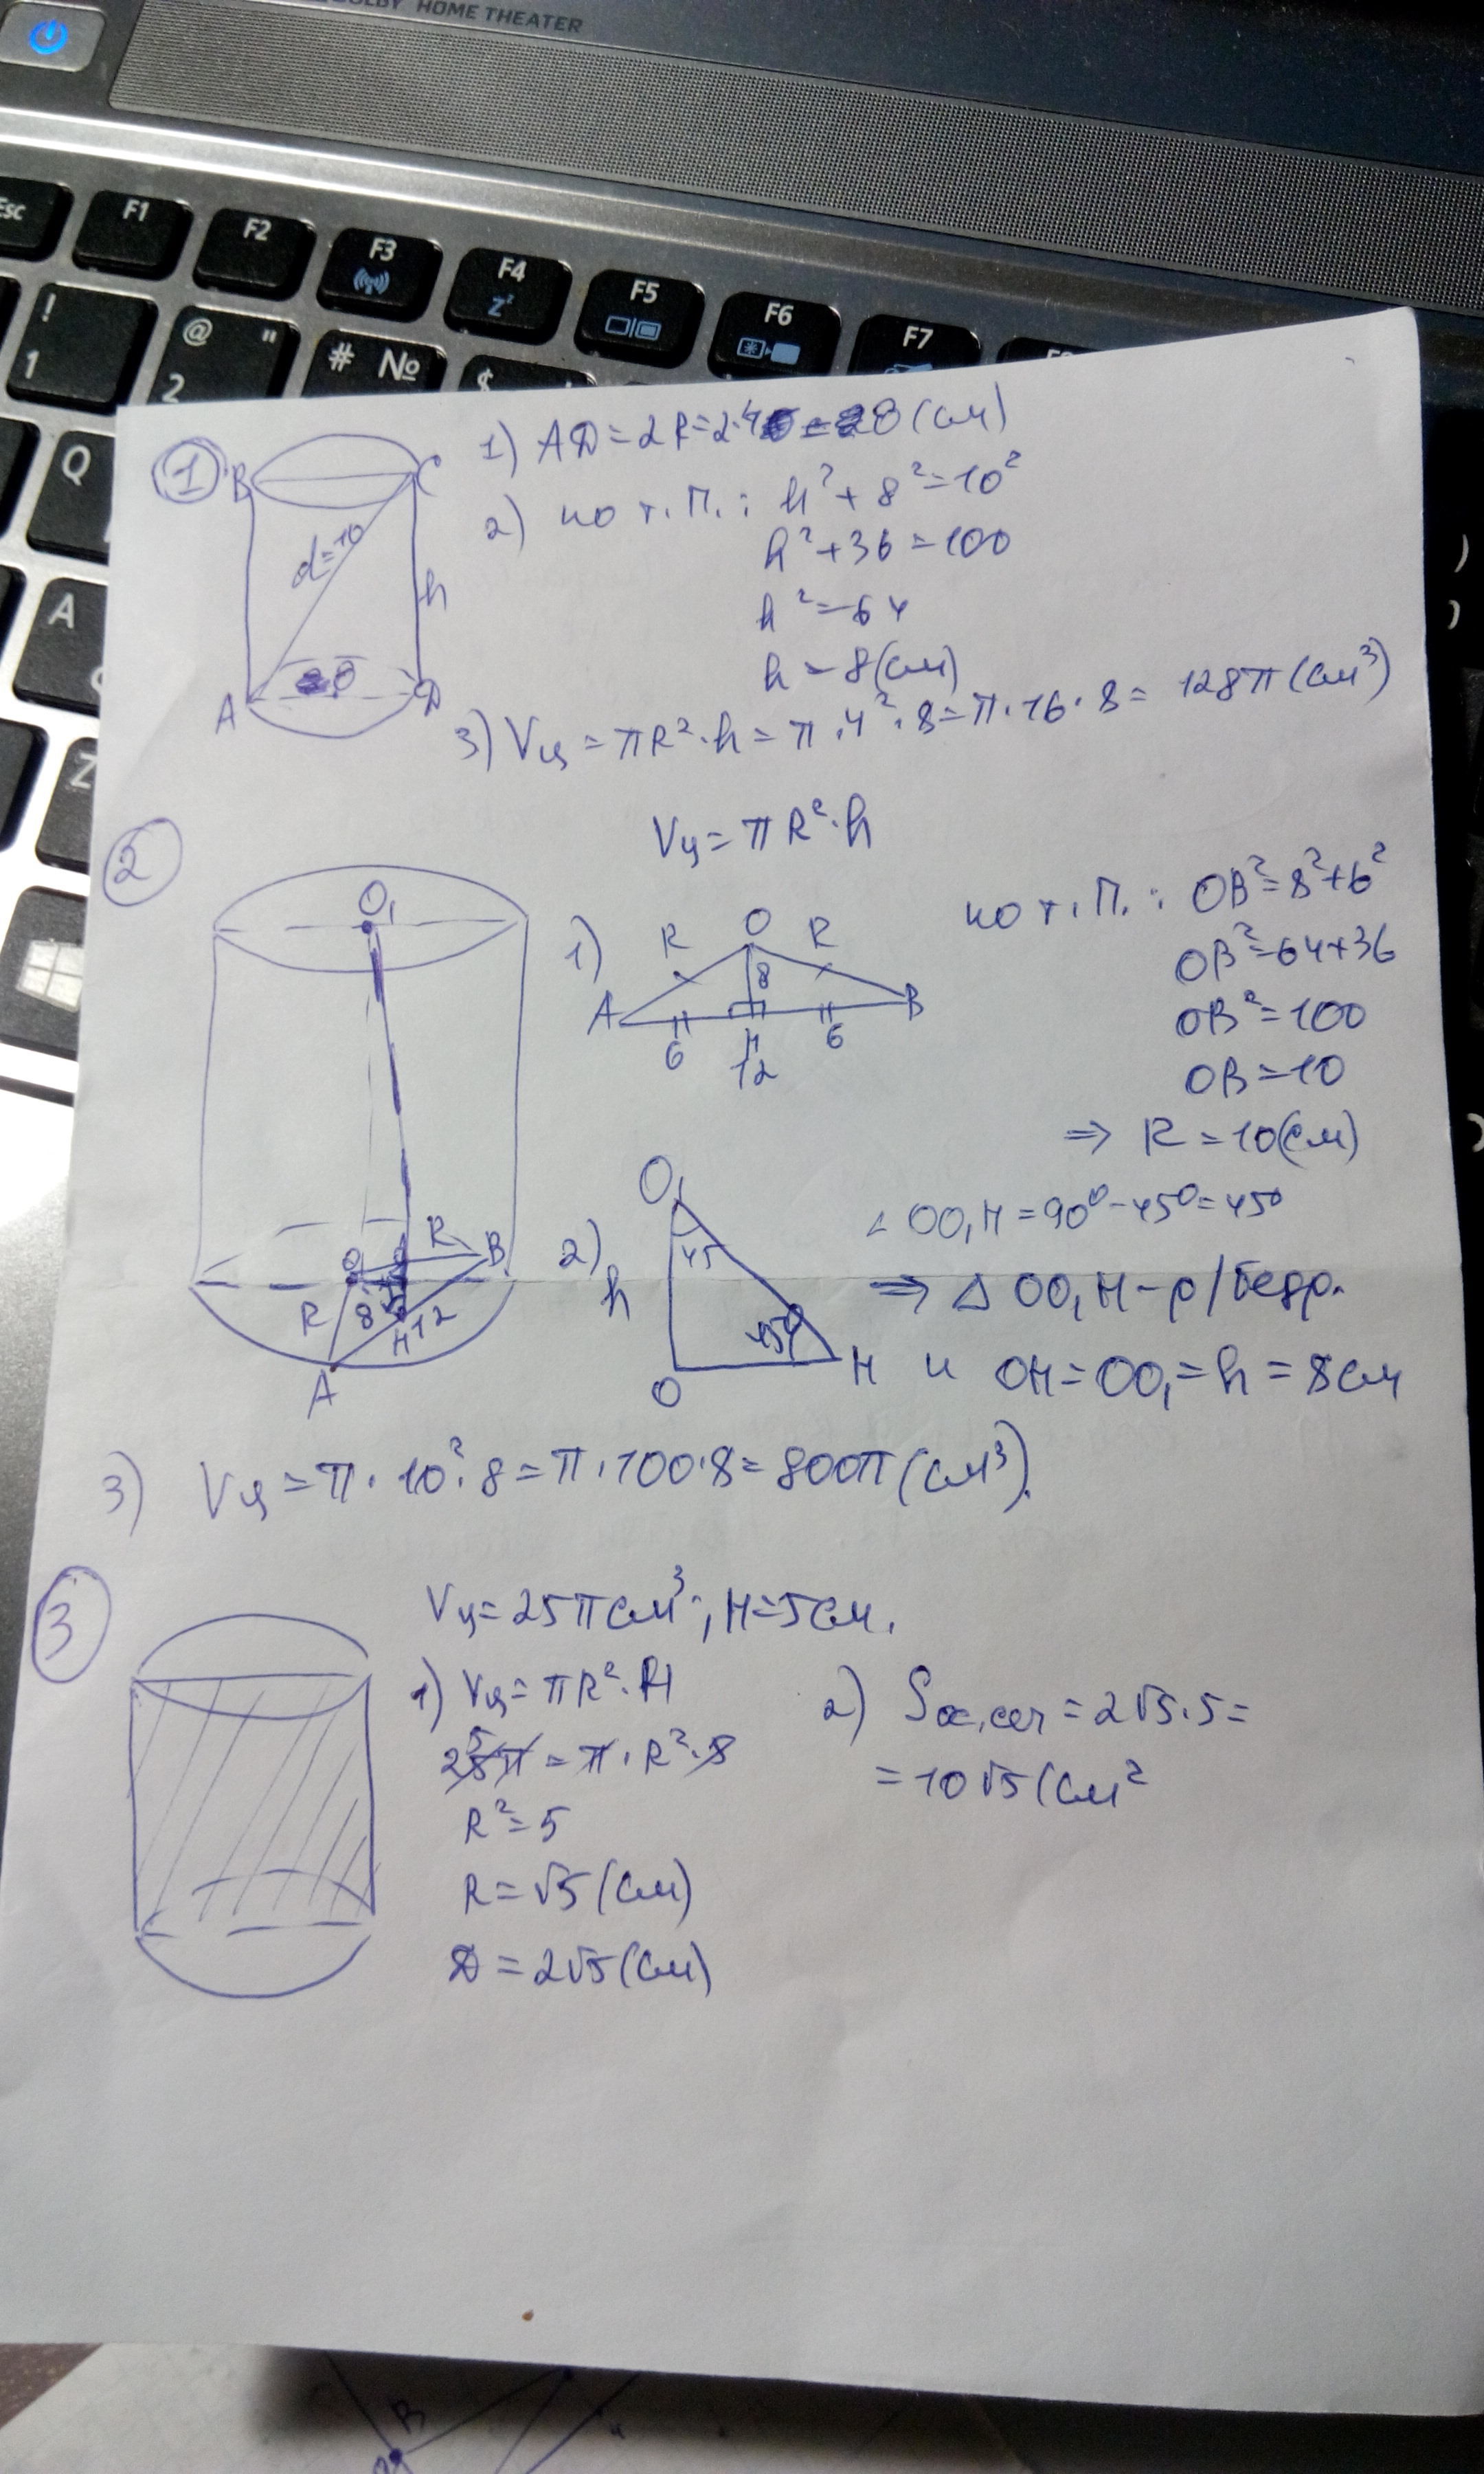 DOLBY HOME THEATER
Esc F1 F2 F3 F4 F5 F6 F7
Zz
! 1 @ " 2 # № $
Q
A
Z
1
1) AD = 2R = 2·4 = 8 (см)
B C
2) по т.П.: h² + 8² = 10²
d=10
h² + 36 = 100
h
h² = 64
h = 8 (см)
8
A D
3) Vц = πR²·h = π·4²·8 = π·16·8 = 128π (см³)
2
Vц = πR²·h
O₁
1) R O R
8
A B
6 H 6
12
по т.П.: OB² = 8² + 6²
OB² = 64 + 36
OB² = 100
OB = 10
⇒ R = 10 (см)
O R B
R 8 H 12
A
2) O₁
45
h
45°
O H
∠ OO₁H = 90° - 45° = 45°
⇒ △ OO₁H - р/бедр.
и OH = OO₁ = h = 8 см
3) Vц = π·10²·8 = π·100·8 = 800π (см³).
3
Vц = 25π см³; H = 5 см.
1) Vц = πR²·H
5
25π = π·R²·5
R² = 5
R = √5 (см)
D = 2√5 (см)
2) Sос.сеч = 2√5·5 =
= 10√5 (см²
B